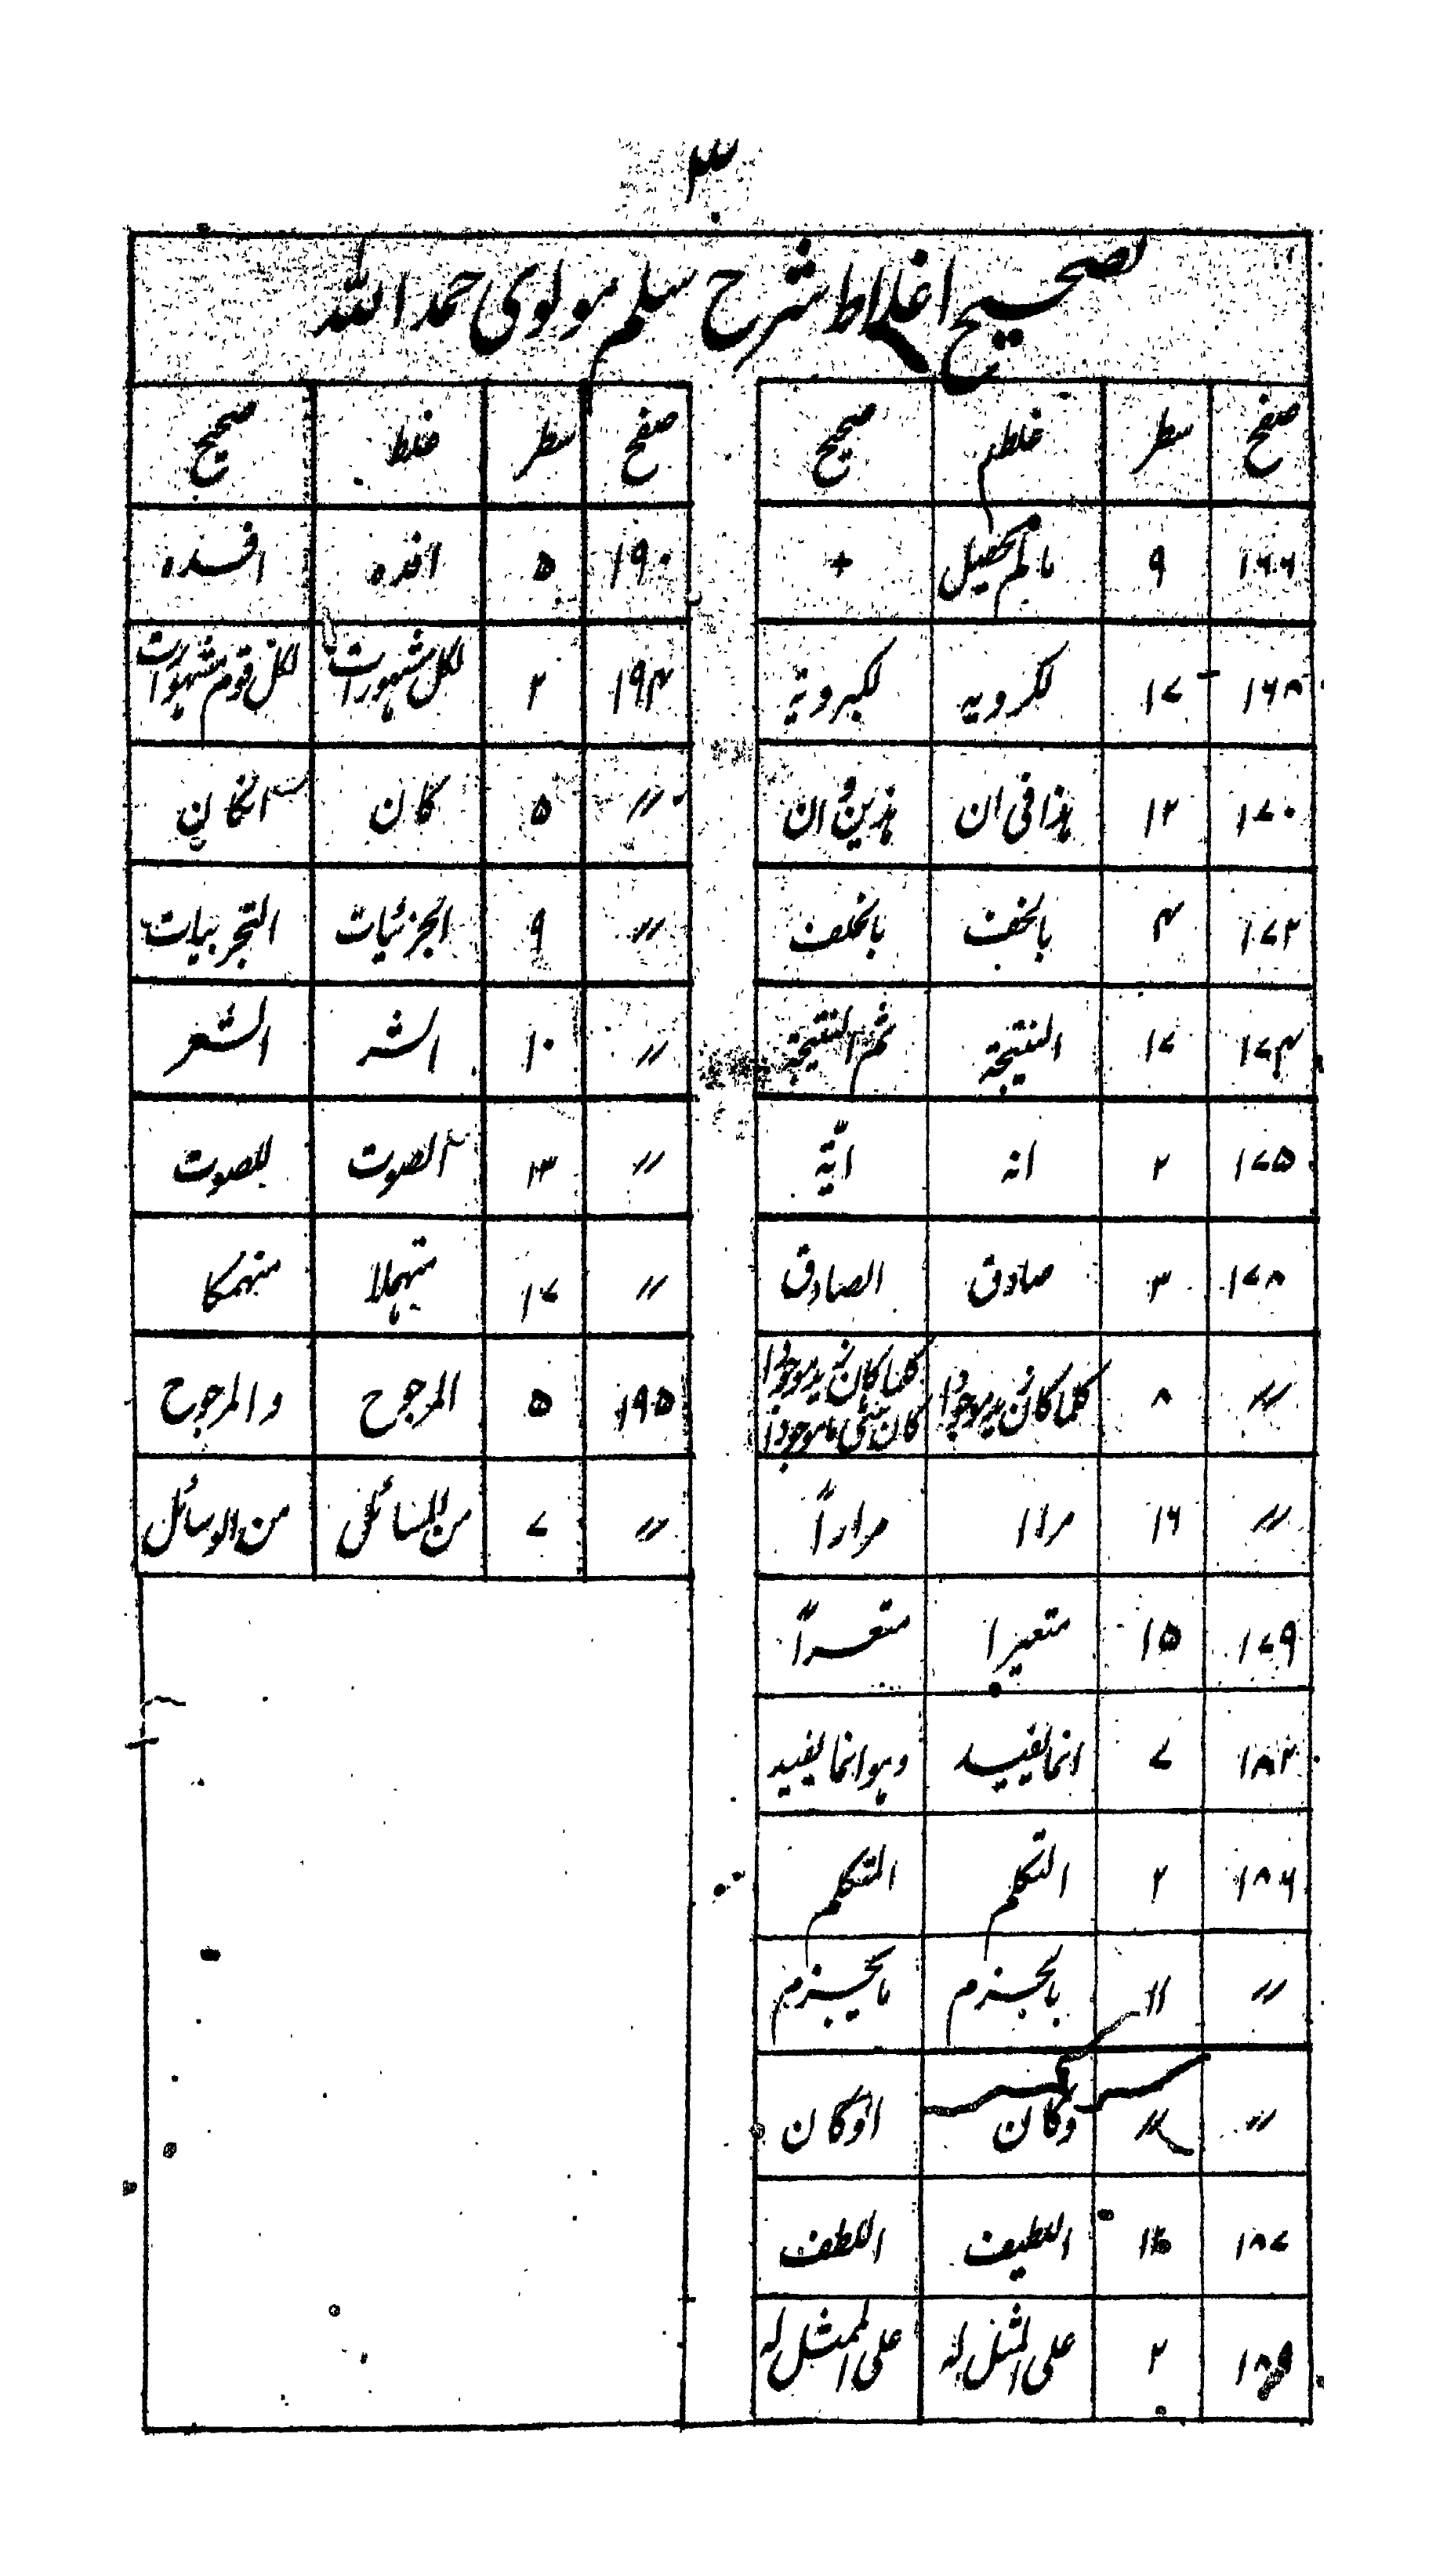 ۳
تصحیح اغلاط شرح سلم مولوی حمد اللہ
صفحہ سطر غلط صحیح
۱۶۶ ۹ مالم تحصیل +
۱۶۸ ۱۷ لکرویہ لکبرویة
۱۷۰ ۱۲ ہذا فی ان ہذین ان
۱۷۲ ۴ بالخف بالخلف
۱۷۴ ۱۷ النتیجة ثم النتیجة
۱۷۵ ۲ انہ انیّة
۱۷۸ ۳ صادق الصادق
〃 ۸ کلما کان زید موجودا کلما کان زید موجودا کان شئی ما موجودا
〃 ۱۶ مراا مراراً
۱۷۹ ۱۵ متعیرا متعسراً
۱۸۲ ۷ انما یفید وہو انما یفید
۱۸۶ ۲ التکلم المتکلم
〃 ۱۱ بالجزم مالجزم
〃 〃 وکان اوکان
۱۸۷ اللطیف اللطف
۱۸۹ ۲ علی المثل لہ علی الممثل لہ
صفحہ سطر غلط صحیح
۱۹۰ ۵ افدہ افسدہ
۱۹۴ ۲ لکل مشہورات لکل قوم مشہورات
〃 ۵ کان انکان
〃 ۹ الجزئیات التجربیات
〃 ۱۰ الشر الشعر
〃 ۱۳ الصوت للصوت
〃 ۱۷ منہملا منہمکا
۱۹۵ ۵ المرجوح والمرجوح
〃 ۷ من المسائل من الوسائل